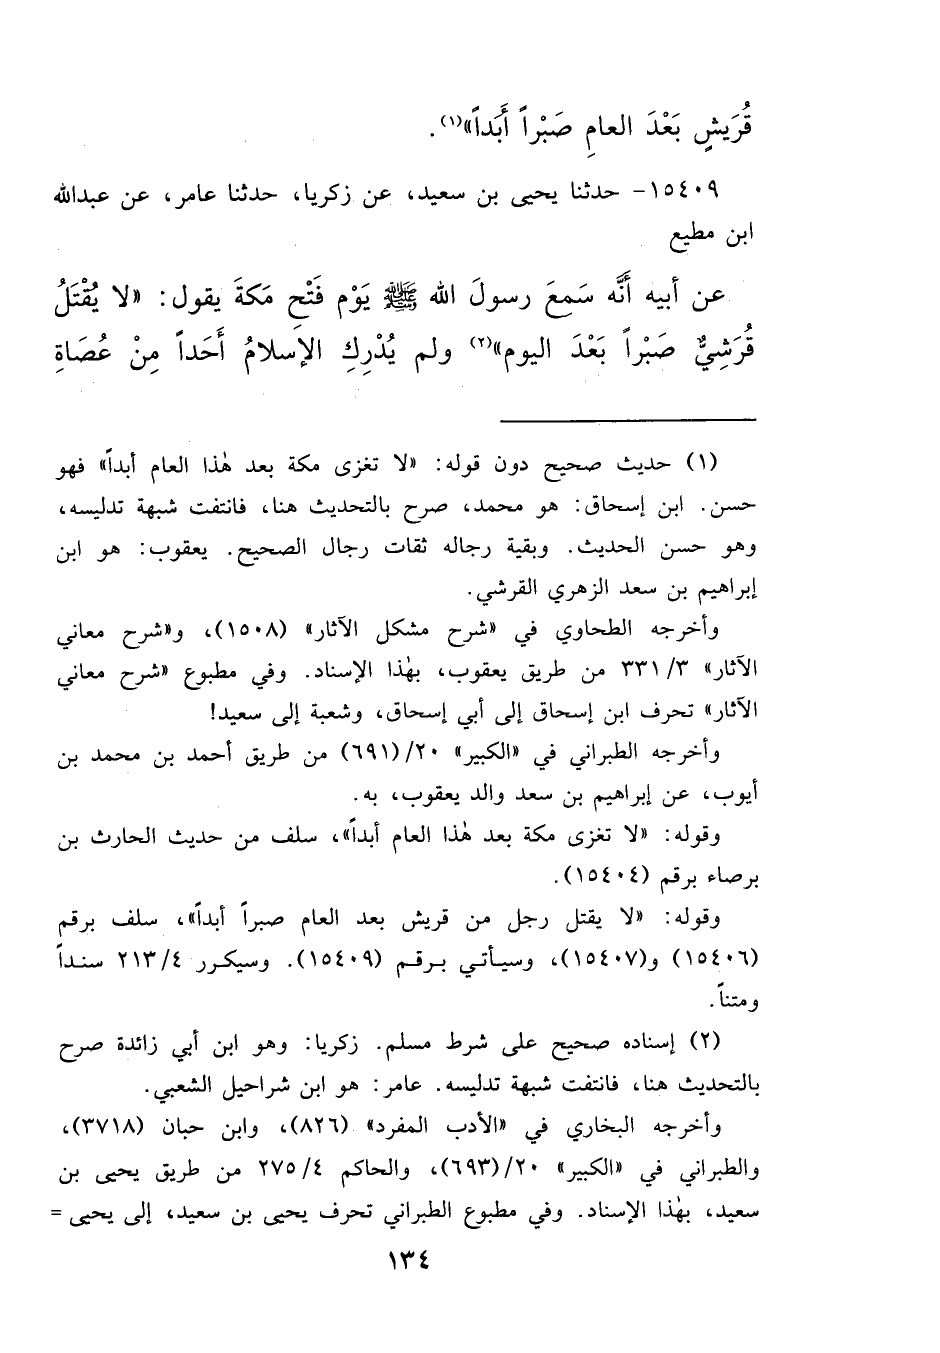 قُرَيشٍ بَعْدَ العامِ صَبْراً أَبَداً»(١).
١٥٤٠٩- حدثنا يحيى بن سعيد، عن زكريا، حدثنا عامر، عن عبدالله
ابن مطيع
عن أبيه أنَّه سَمِعَ رسولَ الله ﷺ يَوْم فَتْحِ مَكةَ يقول: «لا يُقْتَلُ
قُرَشِيٌّ صَبْراً بَعْدَ اليوم»(٢) ولم يُدْرِكِ الإسلامُ أَحَداً مِنْ عُصَاةِ
(١) حديث صحيح دون قوله: «لا تغزى مكة بعد هٰذا العام أبداً» فهو
حسن. ابن إسحاق: هو محمد، صرح بالتحديث هنا، فانتفت شبهة تدليسه،
وهو حسن الحديث. وبقية رجاله ثقات رجال الصحيح. يعقوب: هو ابن
إبراهيم بن سعد الزهري القرشي.
وأخرجه الطحاوي في «شرح مشكل الآثار» (١٥٠٨)، و«شرح معاني
الآثار» ٣٣١/٣ من طريق يعقوب، بهٰذا الإسناد. وفي مطبوع «شرح معاني
الآثار» تحرف ابن إسحاق إلى أبي إسحاق، وشعبة إلى سعيد!
وأخرجه الطبراني في «الكبير» ٢٠/(٦٩١) من طريق أحمد بن محمد بن
أيوب، عن إبراهيم بن سعد والد يعقوب، به.
وقوله: «لا تغزى مكة بعد هٰذا العام أبداً»، سلف من حديث الحارث بن
برصاء برقم (١٥٤٠٤).
وقوله: «لا يقتل رجل من قريش بعد العام صبراً أبداً»، سلف برقم
(١٥٤٠٦) و(١٥٤٠٧)، وسيأتي برقم (١٥٤٠٩). وسيكرر ٢١٣/٤ سنداً
ومتناً.
(٢) إسناده صحيح على شرط مسلم. زكريا: وهو ابن أبي زائدة صرح
بالتحديث هنا، فانتفت شبهة تدليسه. عامر: هو ابن شراحيل الشعبي.
وأخرجه البخاري في «الأدب المفرد» (٨٢٦)، وابن حبان (٣٧١٨)،
والطبراني في «الكبير» ٢٠/(٦٩٣)، والحاكم ٢٧٥/٤ من طريق يحيى بن
سعيد، بهٰذا الإسناد. وفي مطبوع الطبراني تحرف يحيى بن سعيد، إلى يحيى =
١٣٤